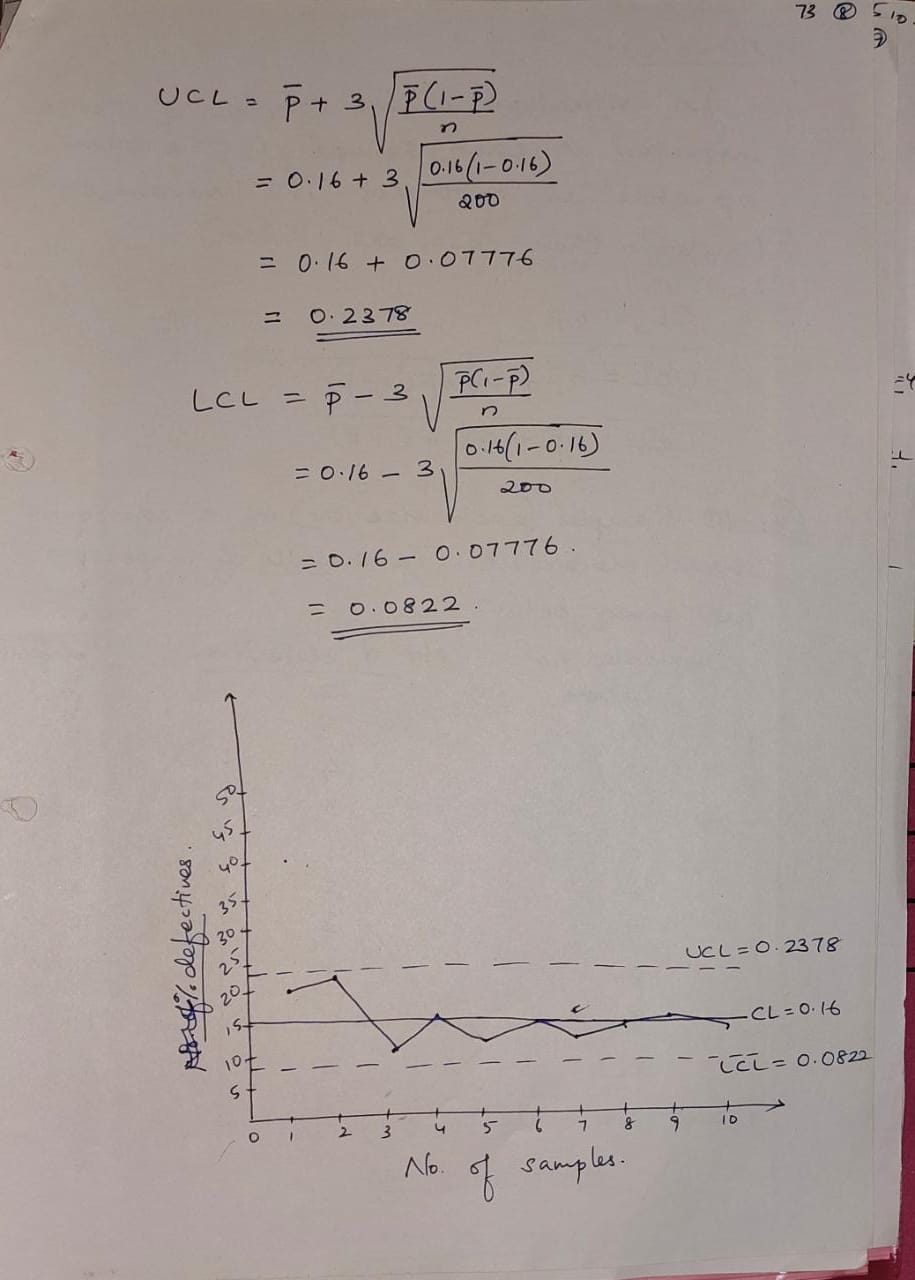 73 ⑧ 5 10.
UCL = p̄ + 3 √(p̄(1-p̄) / n)
= 0.16 + 3 √(0.16(1-0.16) / 200)
= 0.16 + 0.07776
= 0.2378
LCL = p̄ - 3 √(p̄(1-p̄) / n)
= 0.16 - 3 √(0.16(1-0.16) / 200)
= 0.16 - 0.07776.
= 0.0822.
% defectives.
50
45
40
35
30
25
20
15
10
5
UCL = 0.2378
CL = 0.16
LCL = 0.0822
0 1 2 3 4 5 6 7 8 9 10
No. of samples.